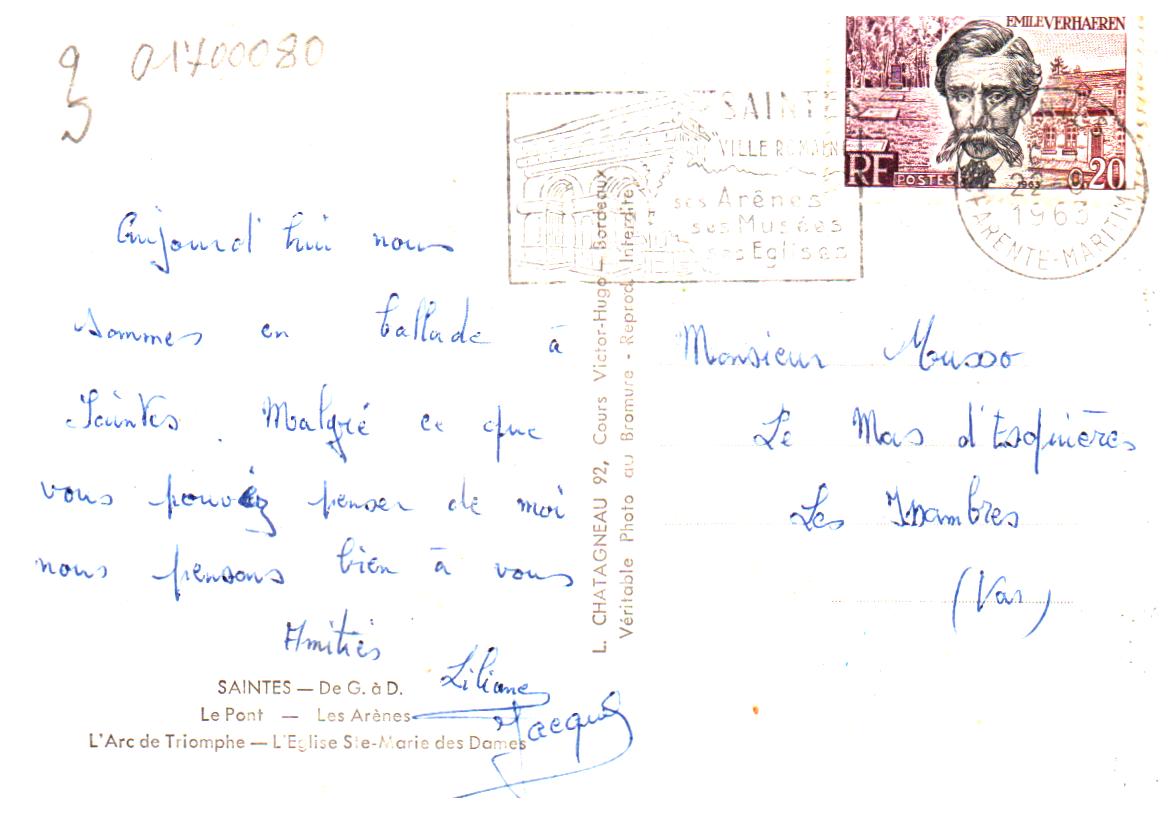 9
5
01700080
EMILE VERHAEREN
RF
POSTES
1963
0,20
SAINTE
"VILLE ROMAIN
ses Arènes
ses Musées
ses Eglises
22
1963
CHARENTE-MARITIME
Aujourd'hui nous
sommes en ballade à
Saintes. Malgré ce que
vous pouvez penser de moi
nous pensons bien à vous
Amitiés
Liliane
Jacques
SAINTES — De G. à D.
Le Pont — Les Arènes
L'Arc de Triomphe — L'Eglise Ste-Marie des Dames
L. CHATAGNEAU 92, Cours Victor-Hugo — Bordeaux
Véritable Photo au Bromure - Reprod. Interdite
Monsieur Musso
Le Mas d'Esquières
Les Issambres
(Var)